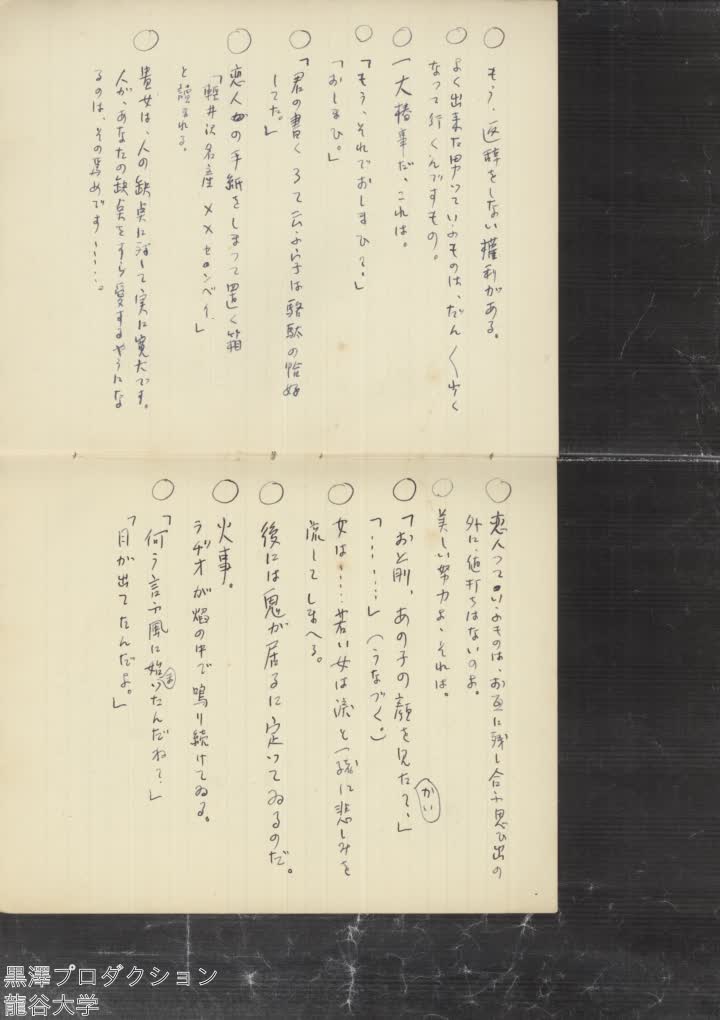 ○ もう、返辞をしない権利がある。
○ よく出来た男っていふものは、だん〱少く
なって行くんですもの。
○ 一大椿事だ、これは。
○ 「もう、それでおしまひ？」
「おしまひ。」
○ 「君の書くろて云ふ字は駱駝の恰好
してた。」
○ 恋人の手紙をしまって置く箱
「軽井沢名産 ××センベイ」
と読まれる。
○ 貴女は、人の欠点に対して実に寛大です。
人が、あなたの欠点をすら愛するやうにな
るのは、その為めです……。
○ 恋人っていふものは、お互に残し合ふ思ひ出の
外に、値打ちはないのよ。
○ 美しい努力よ、それは。
○ 「おと前、あの子の顔を見たかい？」
「………」（うなづく。）
○ 女は……若い女は涙と一緒に悲しみを
流してしまへる。
○ 後には鬼が居るに定ってゐるのだ。
○ 火事。
ラヂオが焔の中で鳴り続けてゐる。
○ 「何う言ふ風に始まったんだね？」
「月が出てたんだよ。」
黒澤プロダクション
龍谷大学